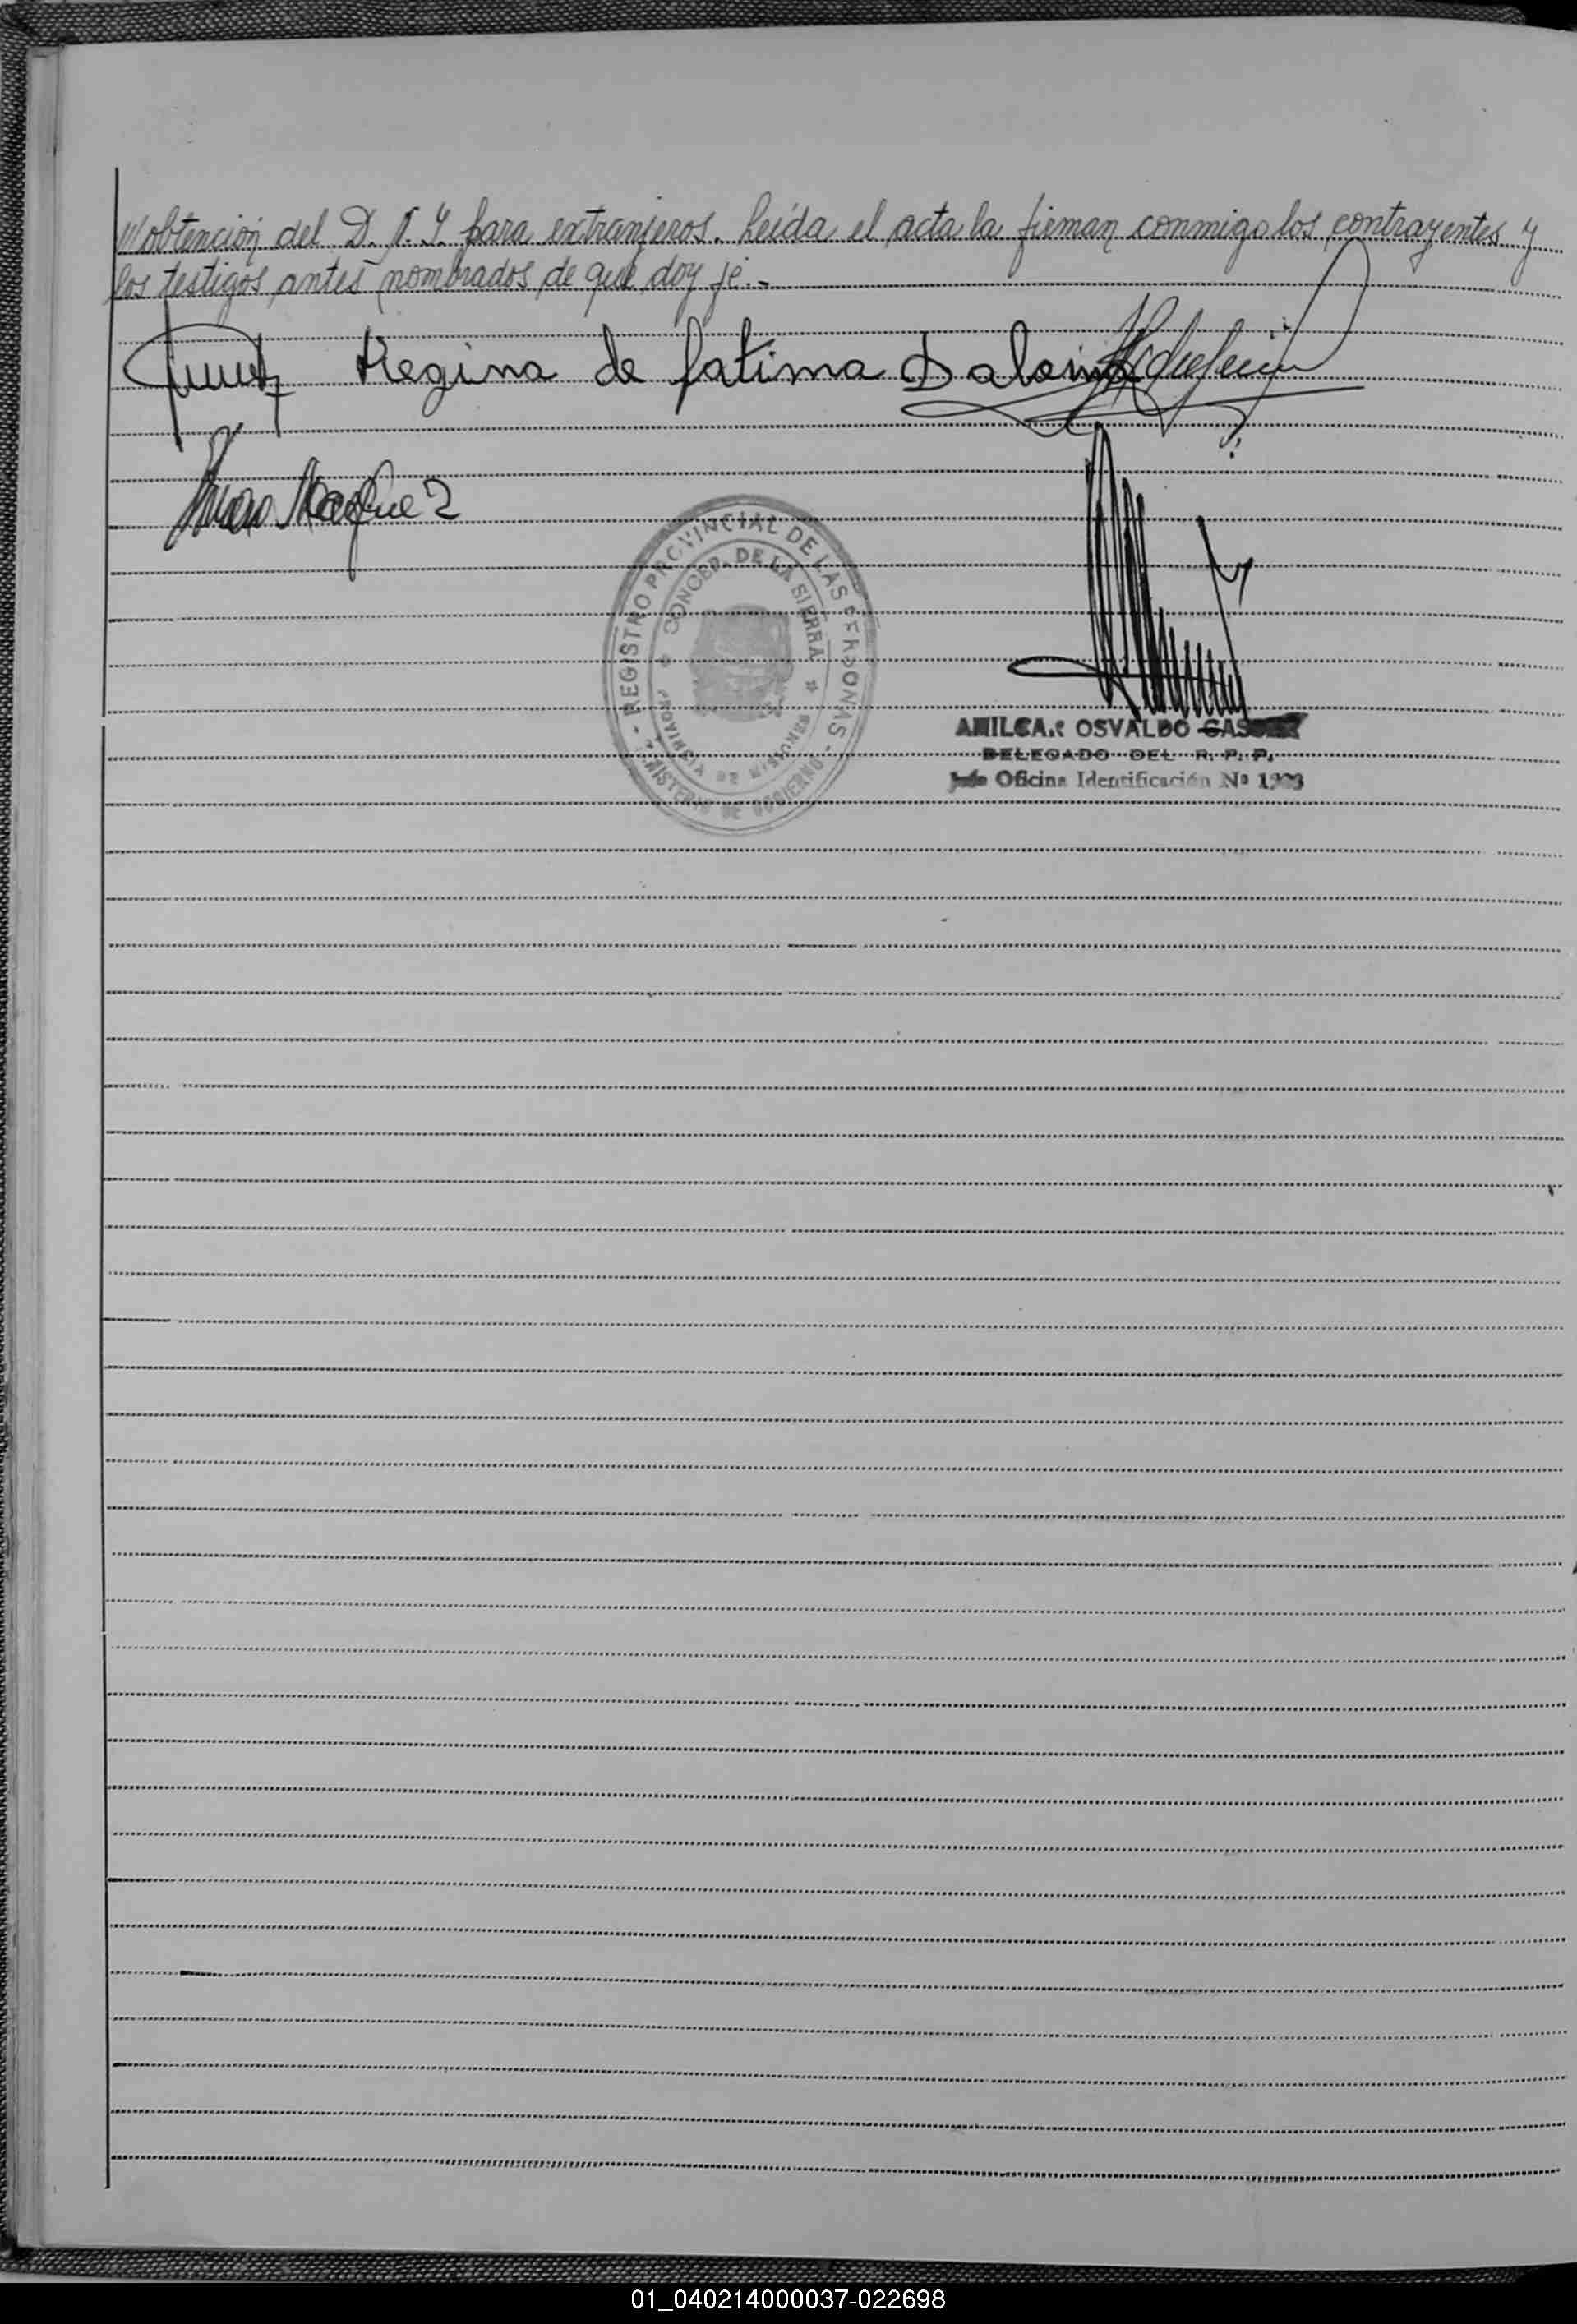 obtención del D.N.I. para extranjeros. Leída el acta la firman conmigo los contrayentes y
los testigos antes nombrados de que doy fé.-
Regina de fatima Dalosi
REGISTRO PROVINCIAL DE LAS PERSONAS
CONCEP. DE LA SIERRA
PROVINCIA DE MISIONES
MINISTERIO DE GOBIERNO
AMILCAR OSVALDO
DELEGADO DEL R. P. P.
Jefe Oficina Identificación Nº
01_040214000037-022698